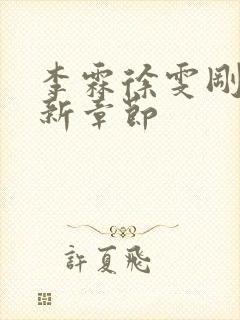 李霖徐雯剛
新章節
許夏飛